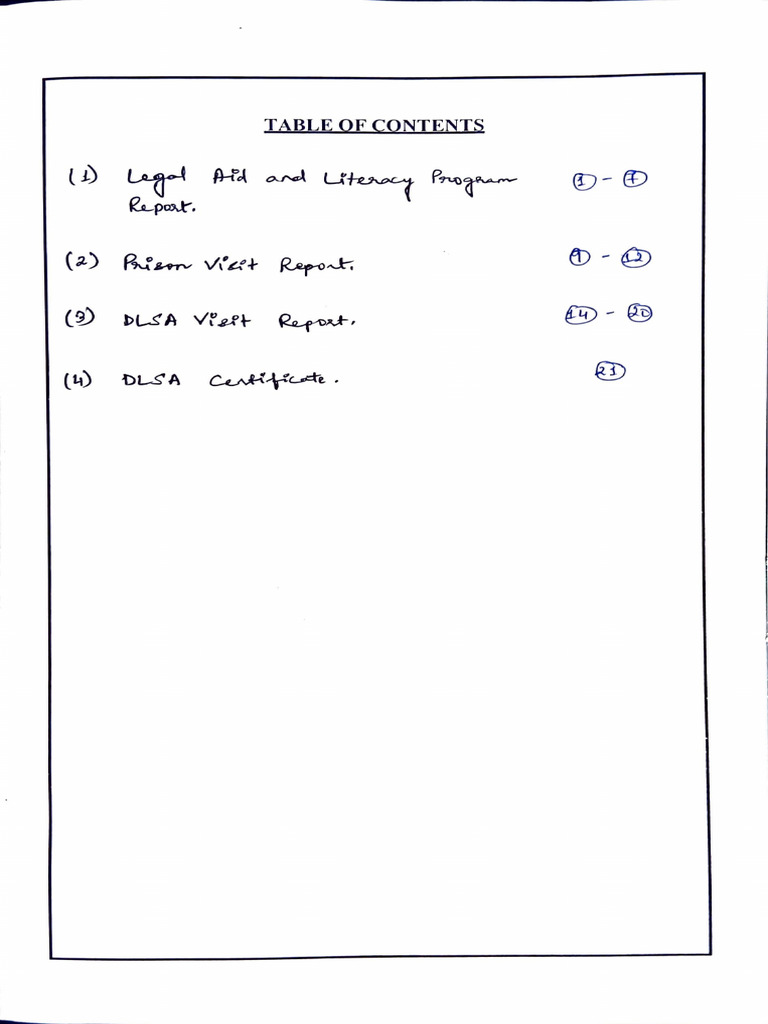 TABLE OF CONTENTS
(1) Legal Aid and Literacy Program 1 - 7
Report.
(2) Prison Visit Report. 9 - 12
(3) DLSA Visit Report. 14 - 20
(4) DLSA Certificate. 21